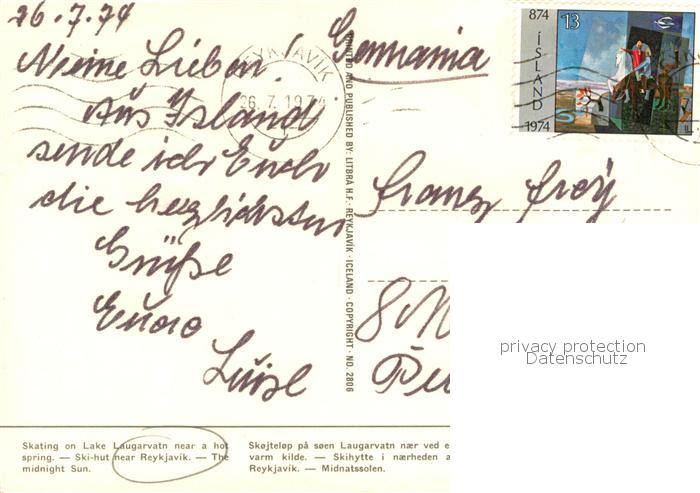 26.7.74
Meine Lieben!
Aus Island
sende ich Euch
die herzlichsten
Grüße
Eure
Luise
Germania
Franz
8 M
REYKJAVÍK
26.7.1974
874
13
ÍSLAND
1974
PRINTED AND PUBLISHED BY: LITBRÁ H.F. · REYKJAVÍK · ICELAND · COPYRIGHT · NO. 2806
privacy protection
Datenschutz
Skating on Lake Laugarvatn near a hot
spring. — Ski-hut near Reykjavík. — The
midnight Sun.
Skøjteløp på søen Laugarvatn nær ved e
varm kilde. — Skihytte i nærheden a
Reykjavík. — Midnatssolen.